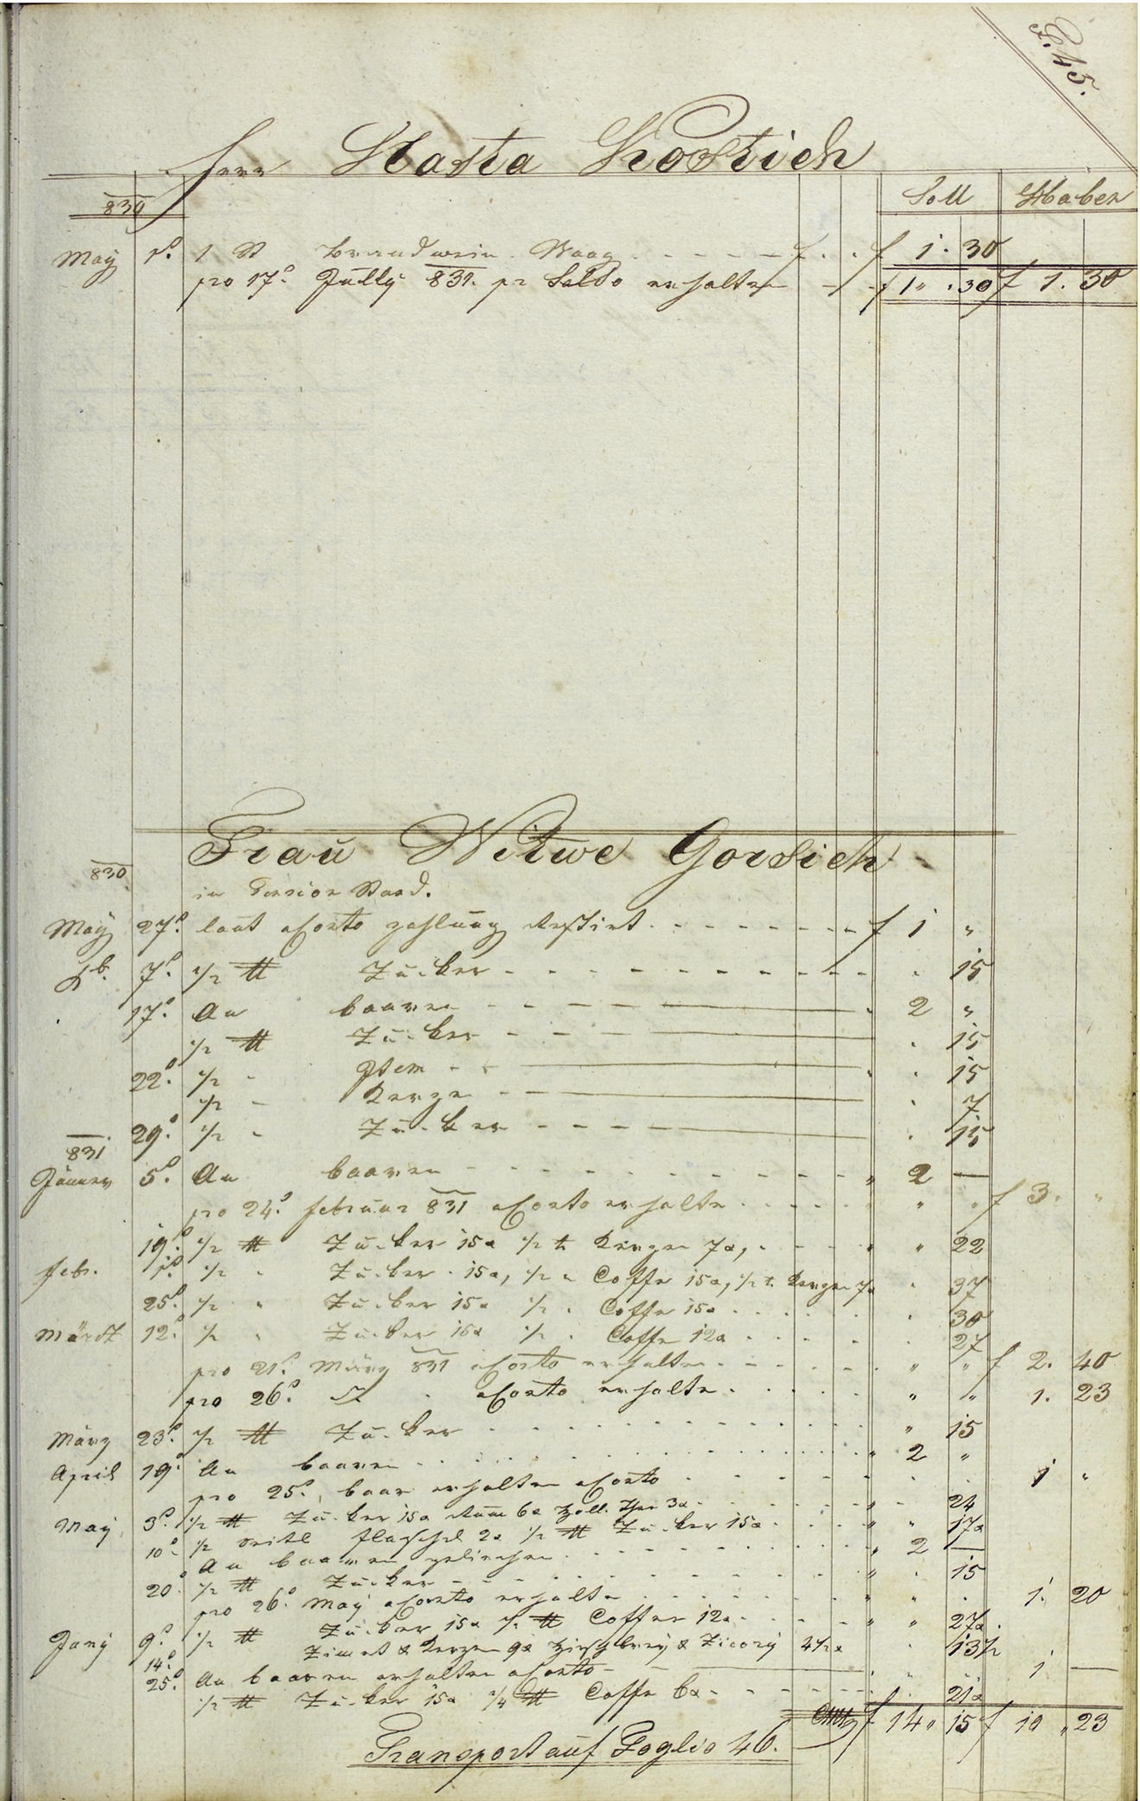 P. 45.
Herr Stasta Kostich
830 Soll Haben
May 1º. 1 St Brandwein Waag f 1. 30
pro 17º. Jully 831. pr Saldo erhalten f 1 " 30 f 1. 30
Frau Witwe Gorsich
830
in Pension Stand.
May 27º. laut aConto zahlung Restirt f 1 "
7º. 1/2 ℔ Zucker " 15
17º. An baaren 2 "
1/2 ℔ Zucker " 15
22º. 1/2 " Item " 15
1/2 " Kerze " 7
29º. 1/2 " Zucker " 15
831
Jänner 5º. An baaren " 2 —
pro 24º. februar 831 aConto erhalte " " f 3. "
19º. 1/2 ℔ Zucker 15x 1/2 ℔ Kerzen 7x, " " 22
febr. 1º. 1/2 " Zucker 15x, 1/2 " Coffe 15x, 1/2 ℔ Kerzen 7x " 37
25º. 1/2 " Zucker 15x 1/2 " Coffe 15x " 30
Märtz 12º. 1/2 " Zucker 15x 1/2 " Coffe 12x " 27
pro 21º. März 831 aConto erhalten " " f 2. 40
pro 26º. aConto erhalte " " 1. 23
März 23º. 1/2 ℔ Zucker " 15
April 19º. An baaren " 2 "
pro 25º. baar erhalten aConto 1 "
May 3º. 1/2 ℔ Zucker 15x Rum 6x 3x " " 24
10º. 1/2 Seitl flaschel 2x 1/2 ℔ Zucker 15x " " 17x
An baaren geliehen " 2 —
20º. 1/2 ℔ Zucker " " 15
pro 26º. May aConto erhalte 1. 20
Juny 9º. 1/2 ℔ Zucker 15x 1/2 ℔ Coffee 12x " " 27x.
14º. Zimet & Kerzen 9x & Zicory 4 1/2x " 13 1/2
25º. An baaren erhalten aConto 1 —
1/2 ℔ Zucker 15x 1/4 ℔ Coffe 6x " 21x
f 14 " 15 f 10 " 23
Transport auf Foglio 46.